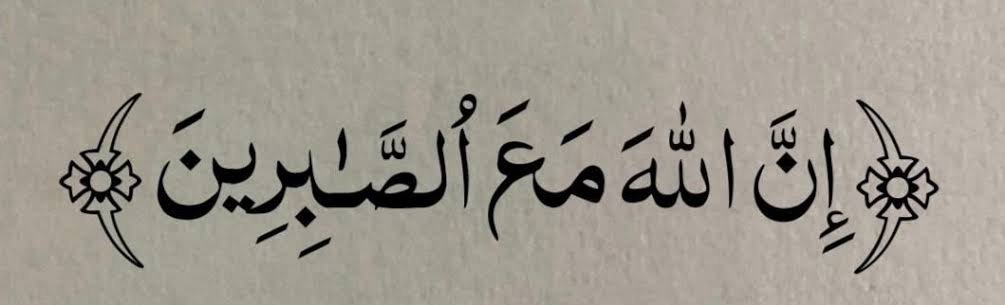 ﴿إِنَّ اللّٰهَ مَعَ ٱلصَّٰبِرِينَ﴾